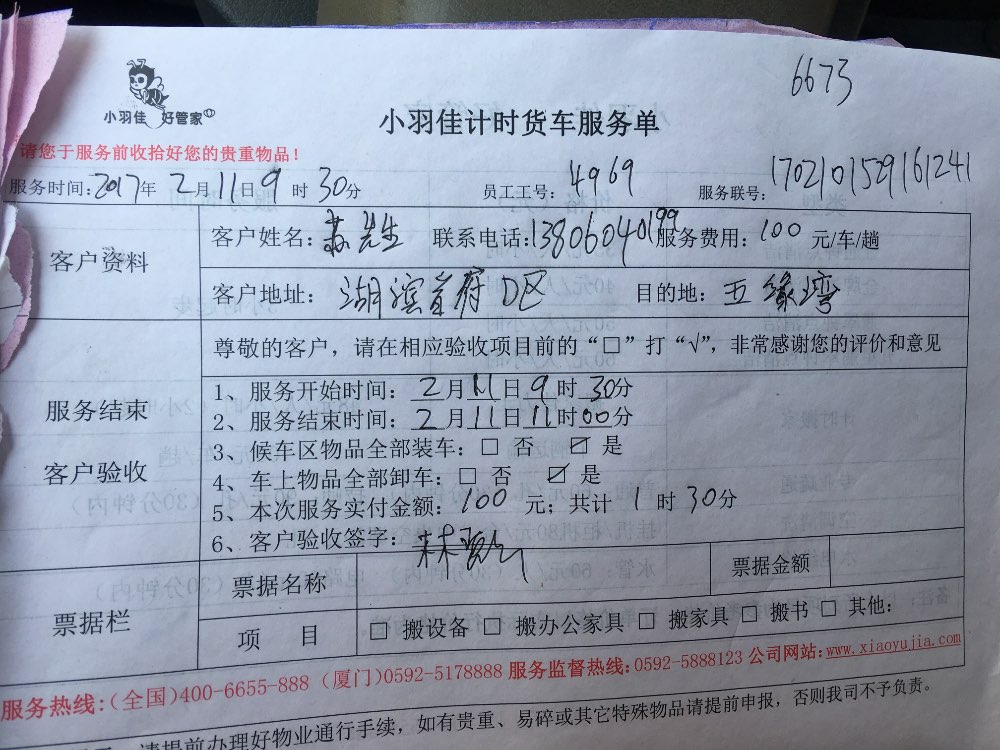 6673
小羽佳 好管家
小羽佳计时货车服务单
请您于服务前收拾好您的贵重物品！
服务时间：2017年 2月11日9时30分 员工工号：4969 服务联号：17021015291612​41
客户资料
客户姓名：苏先生 联系电话：13806040199 服务费用：100 元/车/趟
客户地址：湖滨首府D区 目的地：五缘湾
尊敬的客户，请在相应验收项目前的“□”打“√”，非常感谢您的评价和意见
服务结束
客户验收
1、服务开始时间：2月11日9时30分
2、服务结束时间：2月11日11时00分
3、候车区物品全部装车：□ 否 ☑ 是
4、车上物品全部卸车：□ 否 ☑ 是
5、本次服务实付金额：100 元；共计 1 时30分
6、客户验收签字：
票据栏
票据名称 票据金额
项 目 □ 搬设备 □ 搬办公家具 □ 搬家具 □ 搬书 □ 其他：
服务热线：(全国)400-6655-888 (厦门)0592-5178888 服务监督热线：0592-5888123 公司网站：www.xiaoyujia.com
请提前办理好物业通行手续，如有贵重、易碎或其它特殊物品请提前申报，否则我司不予负责。